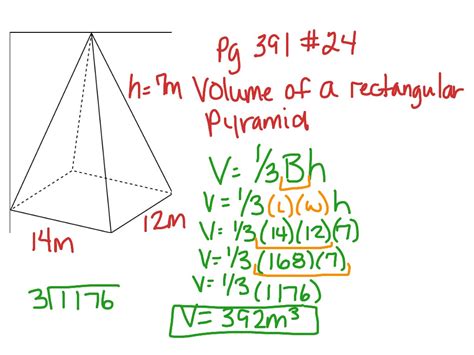 Pg 391 #24
h=7m Volume of a rectangular
Pyramid
V= 1/3 Bh
V= 1/3(L)(w)h
V= 1/3(14)(12)(7)
V= 1/3(168)(7)
V= 1/3(1176)
V= 392m³
12m
14m
3⟌1176